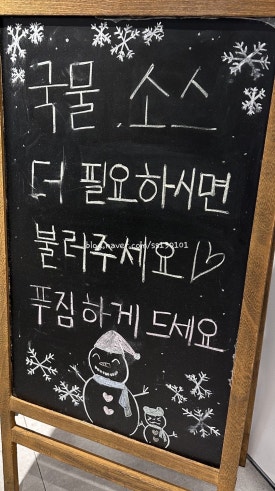 국물, 소스
더 필요하시면
불러주세요♡
푸짐하게 드세요
blog.naver.com/ss130101